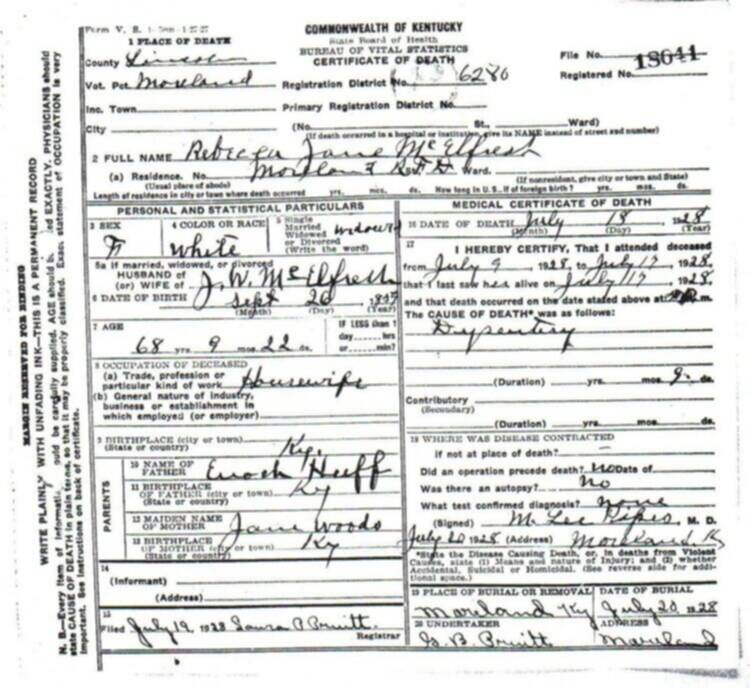 COMMONWEALTH OF KENTUCKY
State Board of Health
BUREAU OF VITAL STATISTICS
CERTIFICATE OF DEATH
Form V. S.
1 PLACE OF DEATH
County Lincoln
Vot. Pct. Moreland
Inc. Town
City
File No. 18041
Registered No.
Registration District No. 6280
Primary Registration District No.
(No. St., Ward)
(If death occurred in a hospital or institution, give its NAME instead of street and number)
2 FULL NAME Rebecca Jane McElfresh
(a) Residence. No. Moreland RFD Ward.
(Usual place of abode) (If nonresident, give city or town and State)
Length of residence in city or town where death occurred yrs. mos. ds. How long in U. S., if of foreign birth? yrs. mos. ds.
PERSONAL AND STATISTICAL PARTICULARS
3 SEX
F
4 COLOR OR RACE
White
5 Single
Married
Widowed
or Divorced
(Write the word)
widowed
5a If married, widowed, or divorced
HUSBAND of
(or) WIFE of J. W. McElfresh
6 DATE OF BIRTH Sept 26
(Month) (Day) (Year)
7 AGE
68 yrs 9 mos. 22 ds.
IF LESS than 1
day hrs
or min.?
8 OCCUPATION OF DECEASED
(a) Trade, profession or
particular kind of work Housewife
(b) General nature of industry,
business or establishment in
which employed (or employer)
9 BIRTHPLACE (city or town)
(State or country) Ky.
PARENTS
10 NAME OF
FATHER Enoch Huff
11 BIRTHPLACE
OF FATHER (city or town) Ky
(State or country)
12 MAIDEN NAME
OF MOTHER Jane Woods
13 BIRTHPLACE
OF MOTHER (city or town) Ky
(State or country)
14
(Informant)
(Address)
15
Filed July 19, 1928 Laura P. Pruitt
Registrar
MEDICAL CERTIFICATE OF DEATH
16 DATE OF DEATH July 18 1928
(Month) (Day) (Year)
17
I HEREBY CERTIFY, That I attended deceased
from July 9 1928, to July 17, 1928
that I last saw her alive on July 17, 1928,
and that death occurred on the date stated above at m.
The CAUSE OF DEATH* was as follows:
Dysentery
(Duration) yrs. mos. 9 ds.
Contributory
(Secondary)
(Duration) yrs. mos. ds.
18 WHERE WAS DISEASE CONTRACTED
if not at place of death?
Did an operation precede death? no Date of
Was there an autopsy? no
What test confirmed diagnosis? none
(Signed) M. Lee Pipes, M. D.
July 20 1928 (Address) Moreland Ky
*State the Disease Causing Death, or, in deaths from Violent
Causes, state (1) Means and nature of Injury; and (2) whether
Accidental, Suicidal or Homicidal. (See reverse side for addi-
tional space.)
19 PLACE OF BURIAL OR REMOVAL
Moreland Ky
DATE OF BURIAL
July 20, 1928
20 UNDERTAKER
G. B. Pruitt
ADDRESS
Moreland
MARGIN RESERVED FOR BINDING
WRITE PLAINLY WITH UNFADING INK—THIS IS A PERMANENT RECORD
N. B.—Every item of information should be carefully supplied. AGE should be stated EXACTLY. PHYSICIANS should
state CAUSE OF DEATH in plain terms, so that it may be properly classified. Exact statement of OCCUPATION is very
important. See instructions on back of certificate.